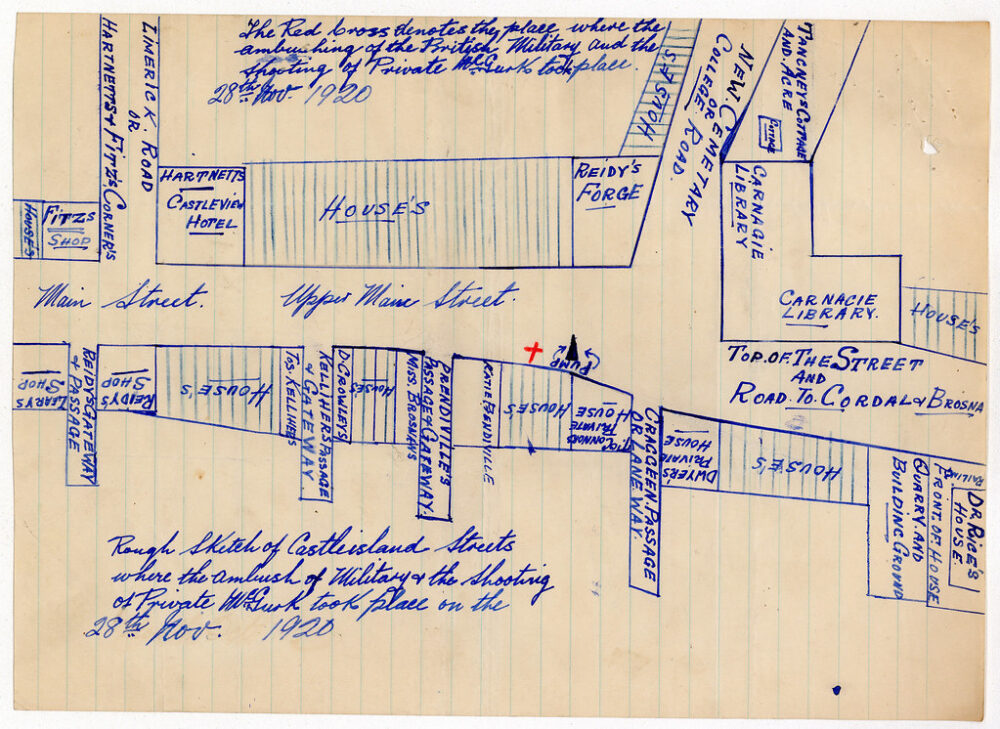 The Red Cross denotes the place where the
ambushing of the British Military and the
shooting of Private McGurk took place.
28th Nov. 1920
LIMERICK. ROAD
OR
HARTNETTS & FITZ'S CORNER'S
HOUSE'S
FITZS
SHOP
HARTNETTS
CASTLEVIEW
HOTEL
HOUSE'S
REIDY'S
FORGE
HOUSE'S
NEW. CEMETARY
OR
COLLEGE ROAD.
TANGNEYS COTTAGE
AND. ACRE
COTTAGE
CARNAGIE
LIBRARY
CARNAGIE
LIBRARY.
HOUSE'S
Main Street.
Upper Main Street.
TOP. OF. THE STREET
AND
ROAD. TO. CORDAL & BROSNA
LEARYS
SHOP
REIDY'S GATEWAY
& PASSAGE
REIDY'S
SHOP
HOUSE'S
JAS. KELLIHERS
KELLIHERS PASSAGE
& GATEWAY.
D CROWLEYS
HOUSE'S
MISS. BROSNAN'S
PRENDIVILLE'S
PASSAGE & GATEWAY.
KATIE PRENDIVILLE
HOUSE'S
PUMP
CONNORS
PRIVATE
HOUSE
CRAGGEEN. PASSAGE
OR LANE WAY.
DWYERS
PRIVATE
HOUSE
HOUSE'S
QUARRY. AND
BUILDING GROUND
FRONT. OF HOUSE
RAILING
DR. RICE'S
HOUSE.
Rough Sketch of Castleisland Streets
where the ambush of Military & the shooting
of Private McGurk took place on the
28th Nov. 1920.